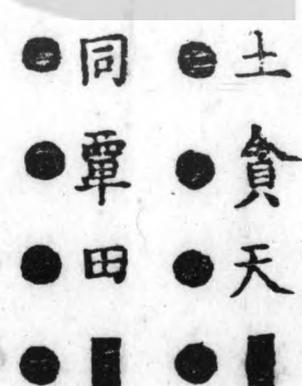 土●貪●天●
同●覃●田●